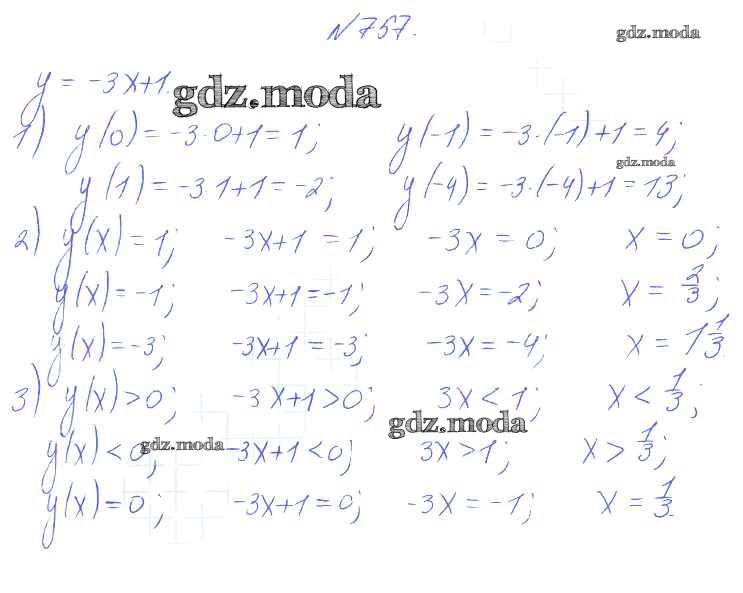 №757. gdz.moda
y = -3x+1. gdz.moda
1) y(0) = -3·0+1 = 1; y(-1) = -3·(-1)+1 = 4;
gdz.moda
y(1) = -3·1+1 = -2; y(-4) = -3·(-4)+1 = 13;
2) y(x) = 1; -3x+1 = 1; -3x = 0; x = 0;
y(x) = -1; -3x+1 = -1; -3x = -2; x = 2/3;
y(x) = -3; -3x+1 = -3; -3x = -4; x = 1 1/3
3) y(x) > 0; -3x+1 > 0; 3x < 1; x < 1/3;
gdz.moda
y(x) < 0; gdz.moda -3x+1 < 0; 3x > 1; x > 1/3;
y(x) = 0; -3x+1 = 0; -3x = -1; x = 1/3.